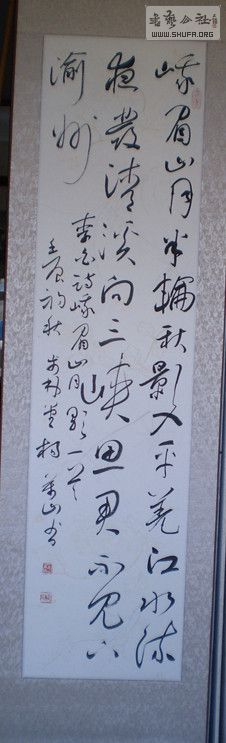 書藝公社
WWW.SHUFA.ORG
峨眉山月半輪秋影入平羌江水流
夜發清溪向三峽思君不見下
渝州
李白詩峨眉山月歌一首
壬辰初秋